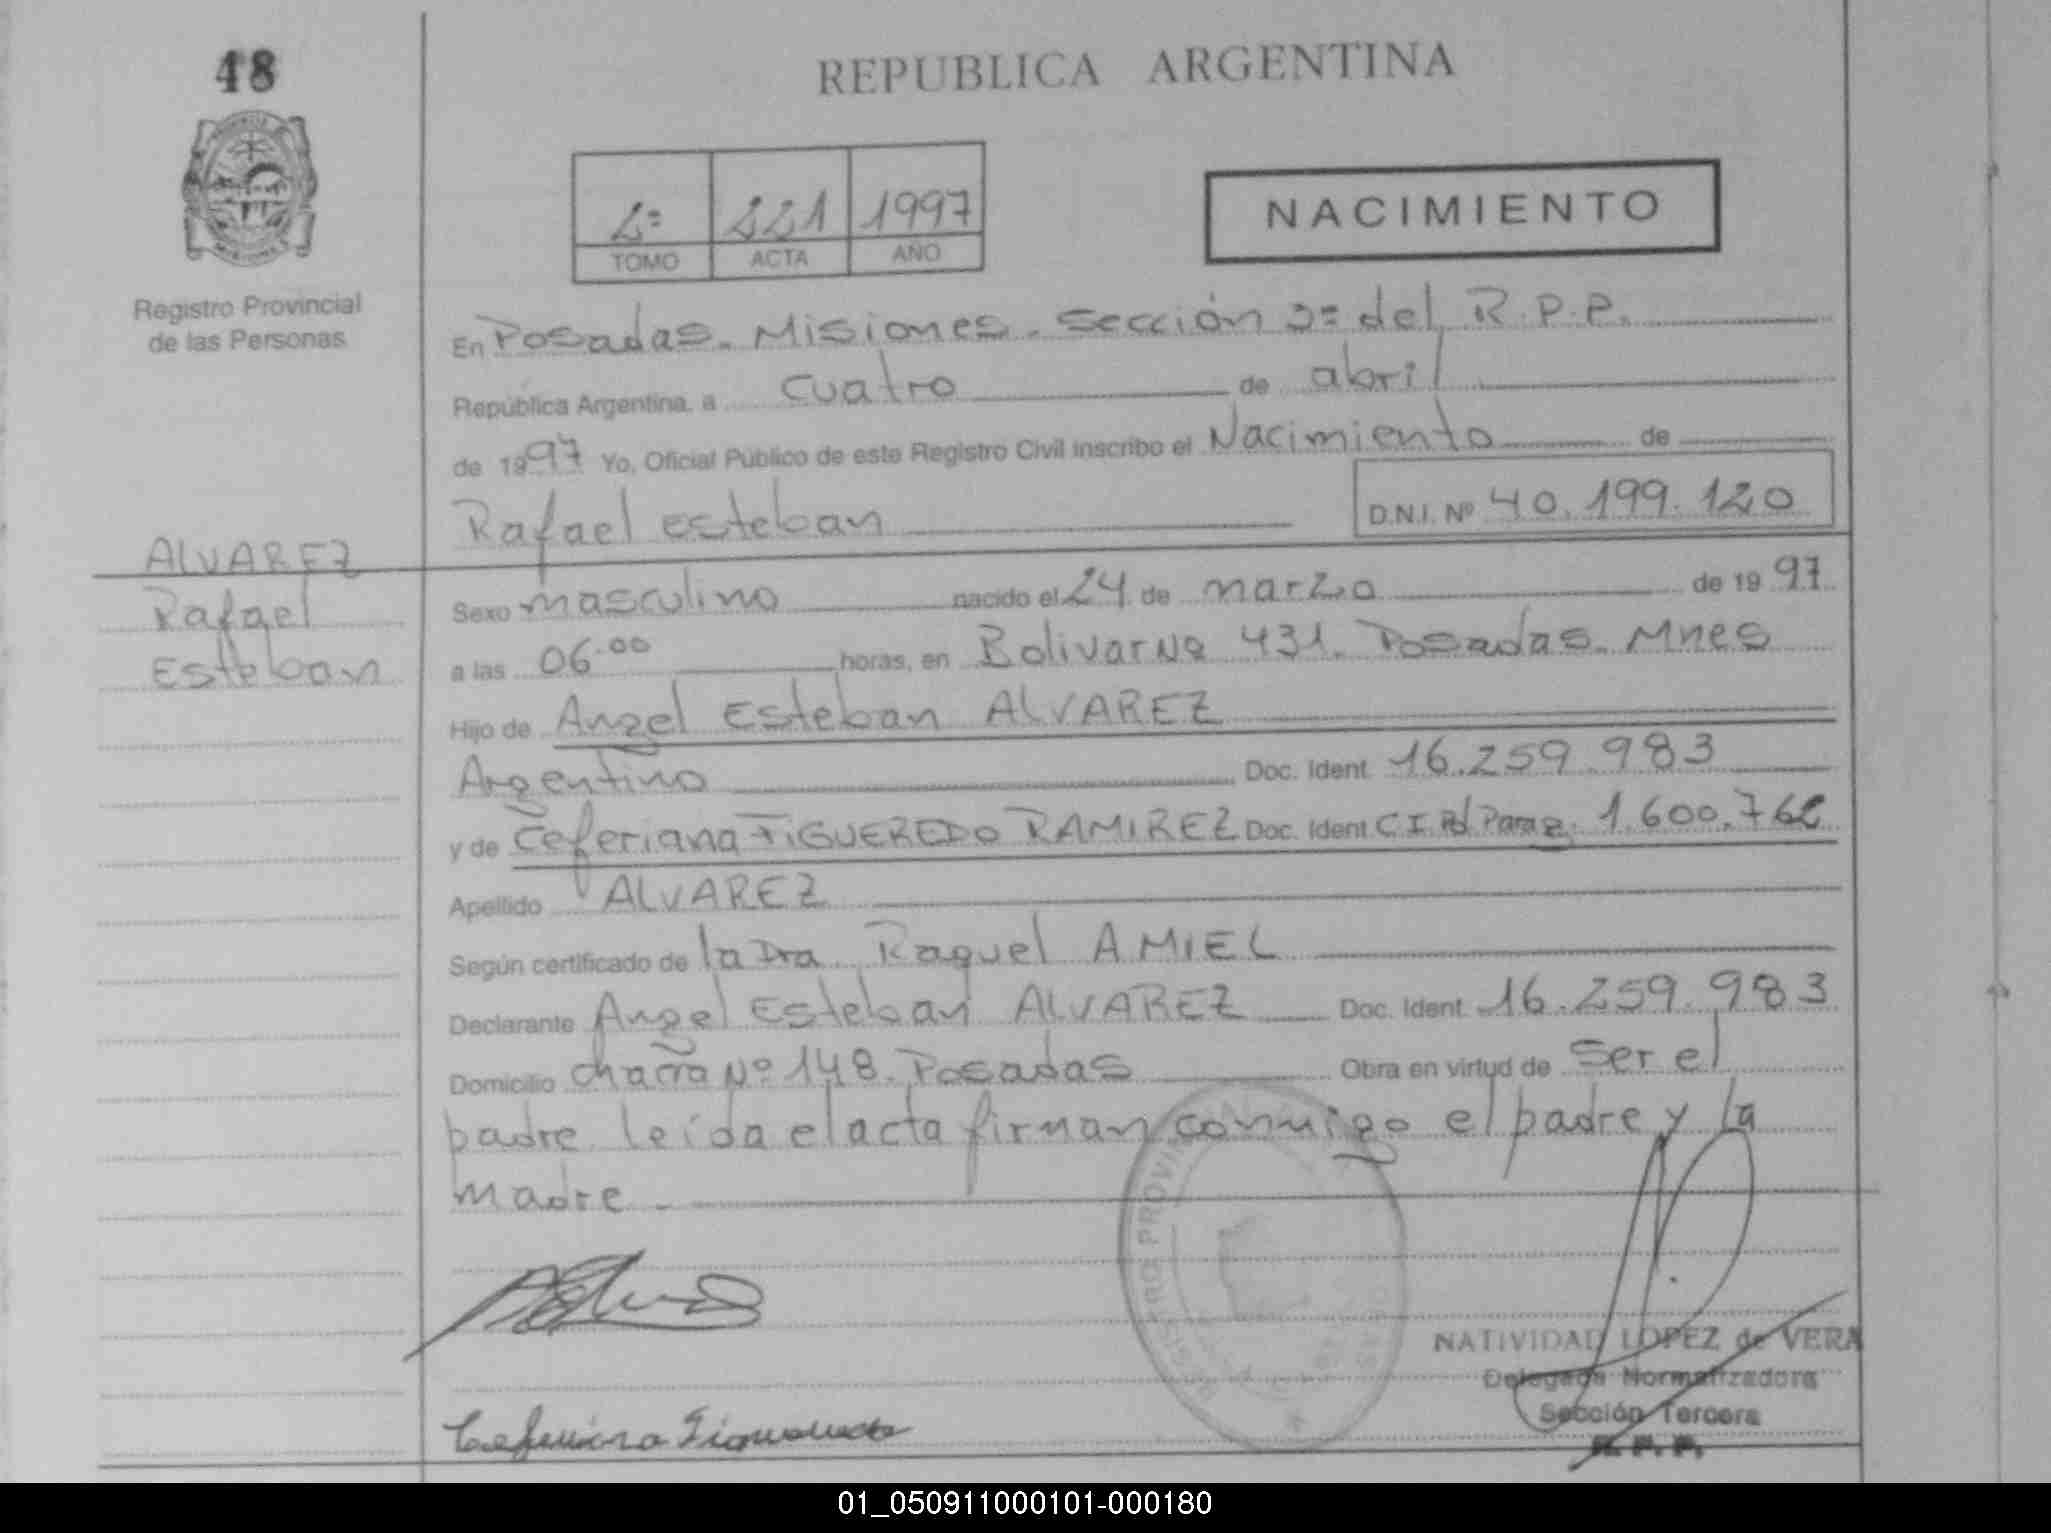 48
REPUBLICA ARGENTINA
2º 221 1997
TOMO ACTA AÑO
NACIMIENTO
Registro Provincial
de las Personas
En Posadas. Misiones. Sección 3º del R.P.P.
República Argentina, a cuatro de abril
de 1997 Yo, Oficial Público de este Registro Civil inscribo el Nacimiento de
Rafael Esteban D.N.I. Nº 40.199.120
ALVAREZ
Rafael
Esteban
Sexo masculino nacido el 24 de marzo de 1997
a las 06.00 horas, en Bolivar Nº 431. Posadas. Mnes
Hijo de Angel Esteban ALVAREZ
Argentino Doc. Ident 16.259.983
y de Ceferiana FIGUEREDO RAMIREZ Doc. Ident C I Pol Parag. 1.600.762
Apellido ALVAREZ
Según certificado de la Dra Raquel AMIEL
Declarante Angel Esteban ALVAREZ Doc. Ident 16.259.983
Domicilio chacra Nº 148. Posadas Obra en virtud de ser el
padre leída el acta firman conmigo el padre y la
madre.
NATIVIDAD LOPEZ de VERA
Delegada Normalizadora
Sección Tercera
R. P. P.
01_050911000101-000180